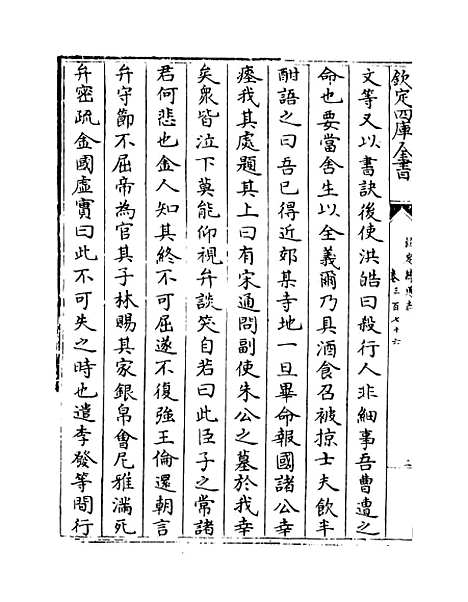 欽定四庫全書
卷三百七十六
文等又以書訣後使洪皓曰殺行人非細事吾曹遭之
命也要當舍生以全義爾乃具酒食召被掠士夫飲半
酣語之曰吾已得近郊某寺地一旦畢命報國諸公幸
瘞我其處題其上曰有宋通問副使朱公之墓於我幸
矣衆皆泣下莫能仰視弁談笑自若曰此臣子之常諸
君何悲也金人知其終不可屈遂不復強王倫還朝言
弁守節不屈帝為官其子林賜其家銀帛會尼雅滿死
弁密疏金國虛實曰此不可失之時也遣李發等間行